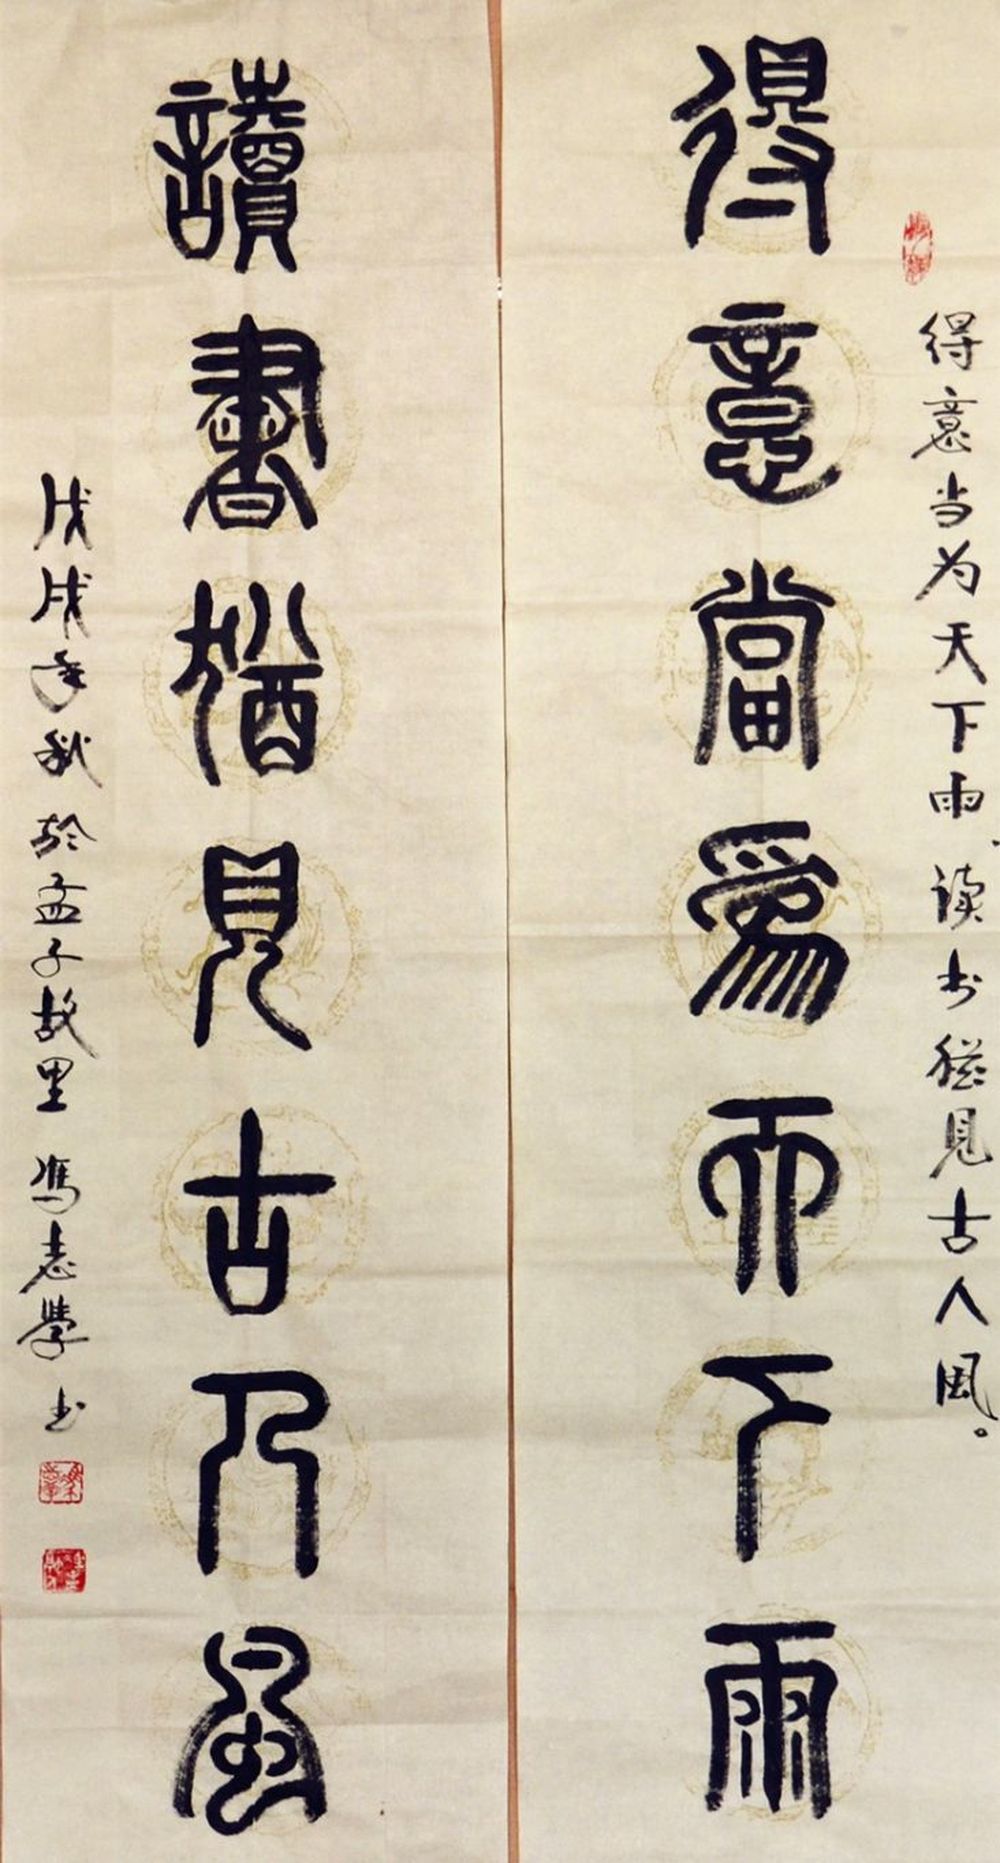 得意当为天下雨、读书猶見古人風。
得意當爲天下雨
讀書猶見古人風
戊戌年秋於孟子故里 馮志學书